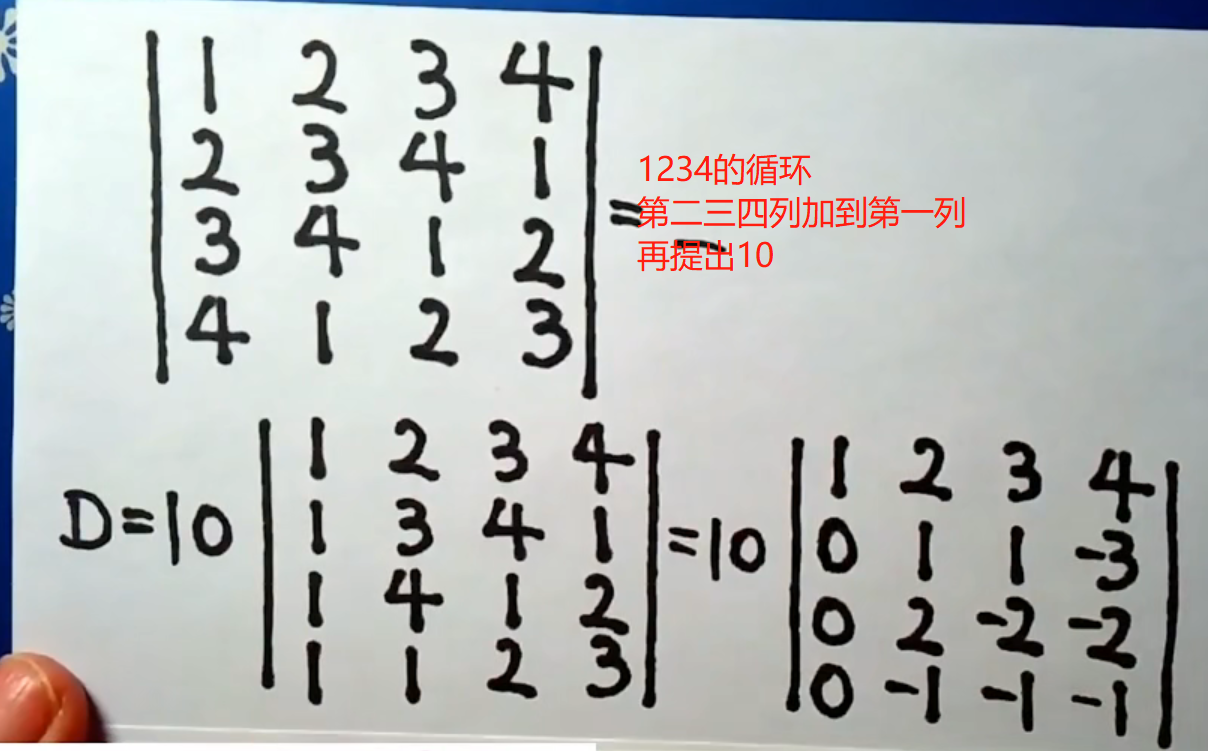 1 2 3 4
2 3 4 1
3 4 1 2
4 1 2 3
=
1234的循环
第二三四列加到第一列
再提出10
D=10 | 1 2 3 4 | =10 | 1 2 3 4 |
1 3 4 1 | 0 1 1 -3
1 4 1 2 | 0 2 -2 -2
1 1 2 3 | 0 -1 -1 -1